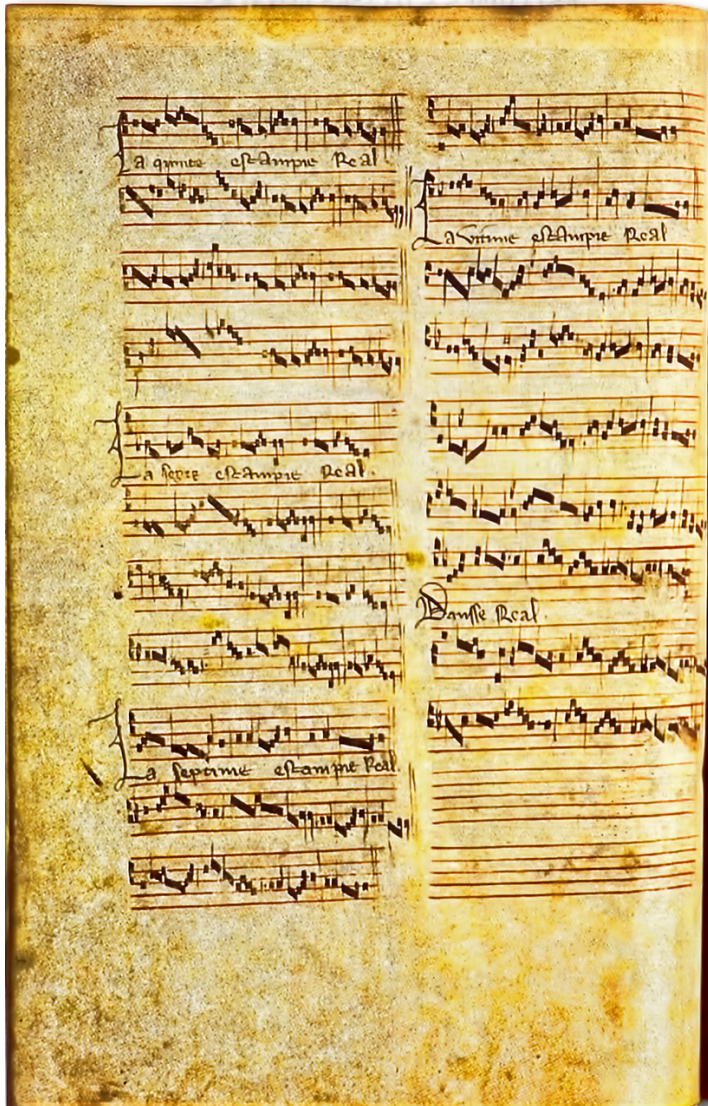 La quinte estampie Real
La sexte estampie Real.
La septime estampie Real.
La vitime estampie Real
Dansse Real.